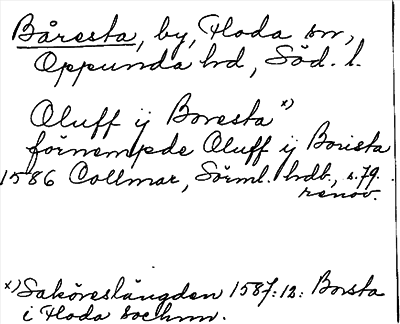 Båresta, by, Floda sn,
Oppunda hd, Söd. l.
Oluff ij Boresta x)
förnempde Oluff ij Borista
1586 Collmar, Sörml. hdb., s. 79.
renov.
x) Saköreslängden 1587:12: Borsta
i Floda sochnn.